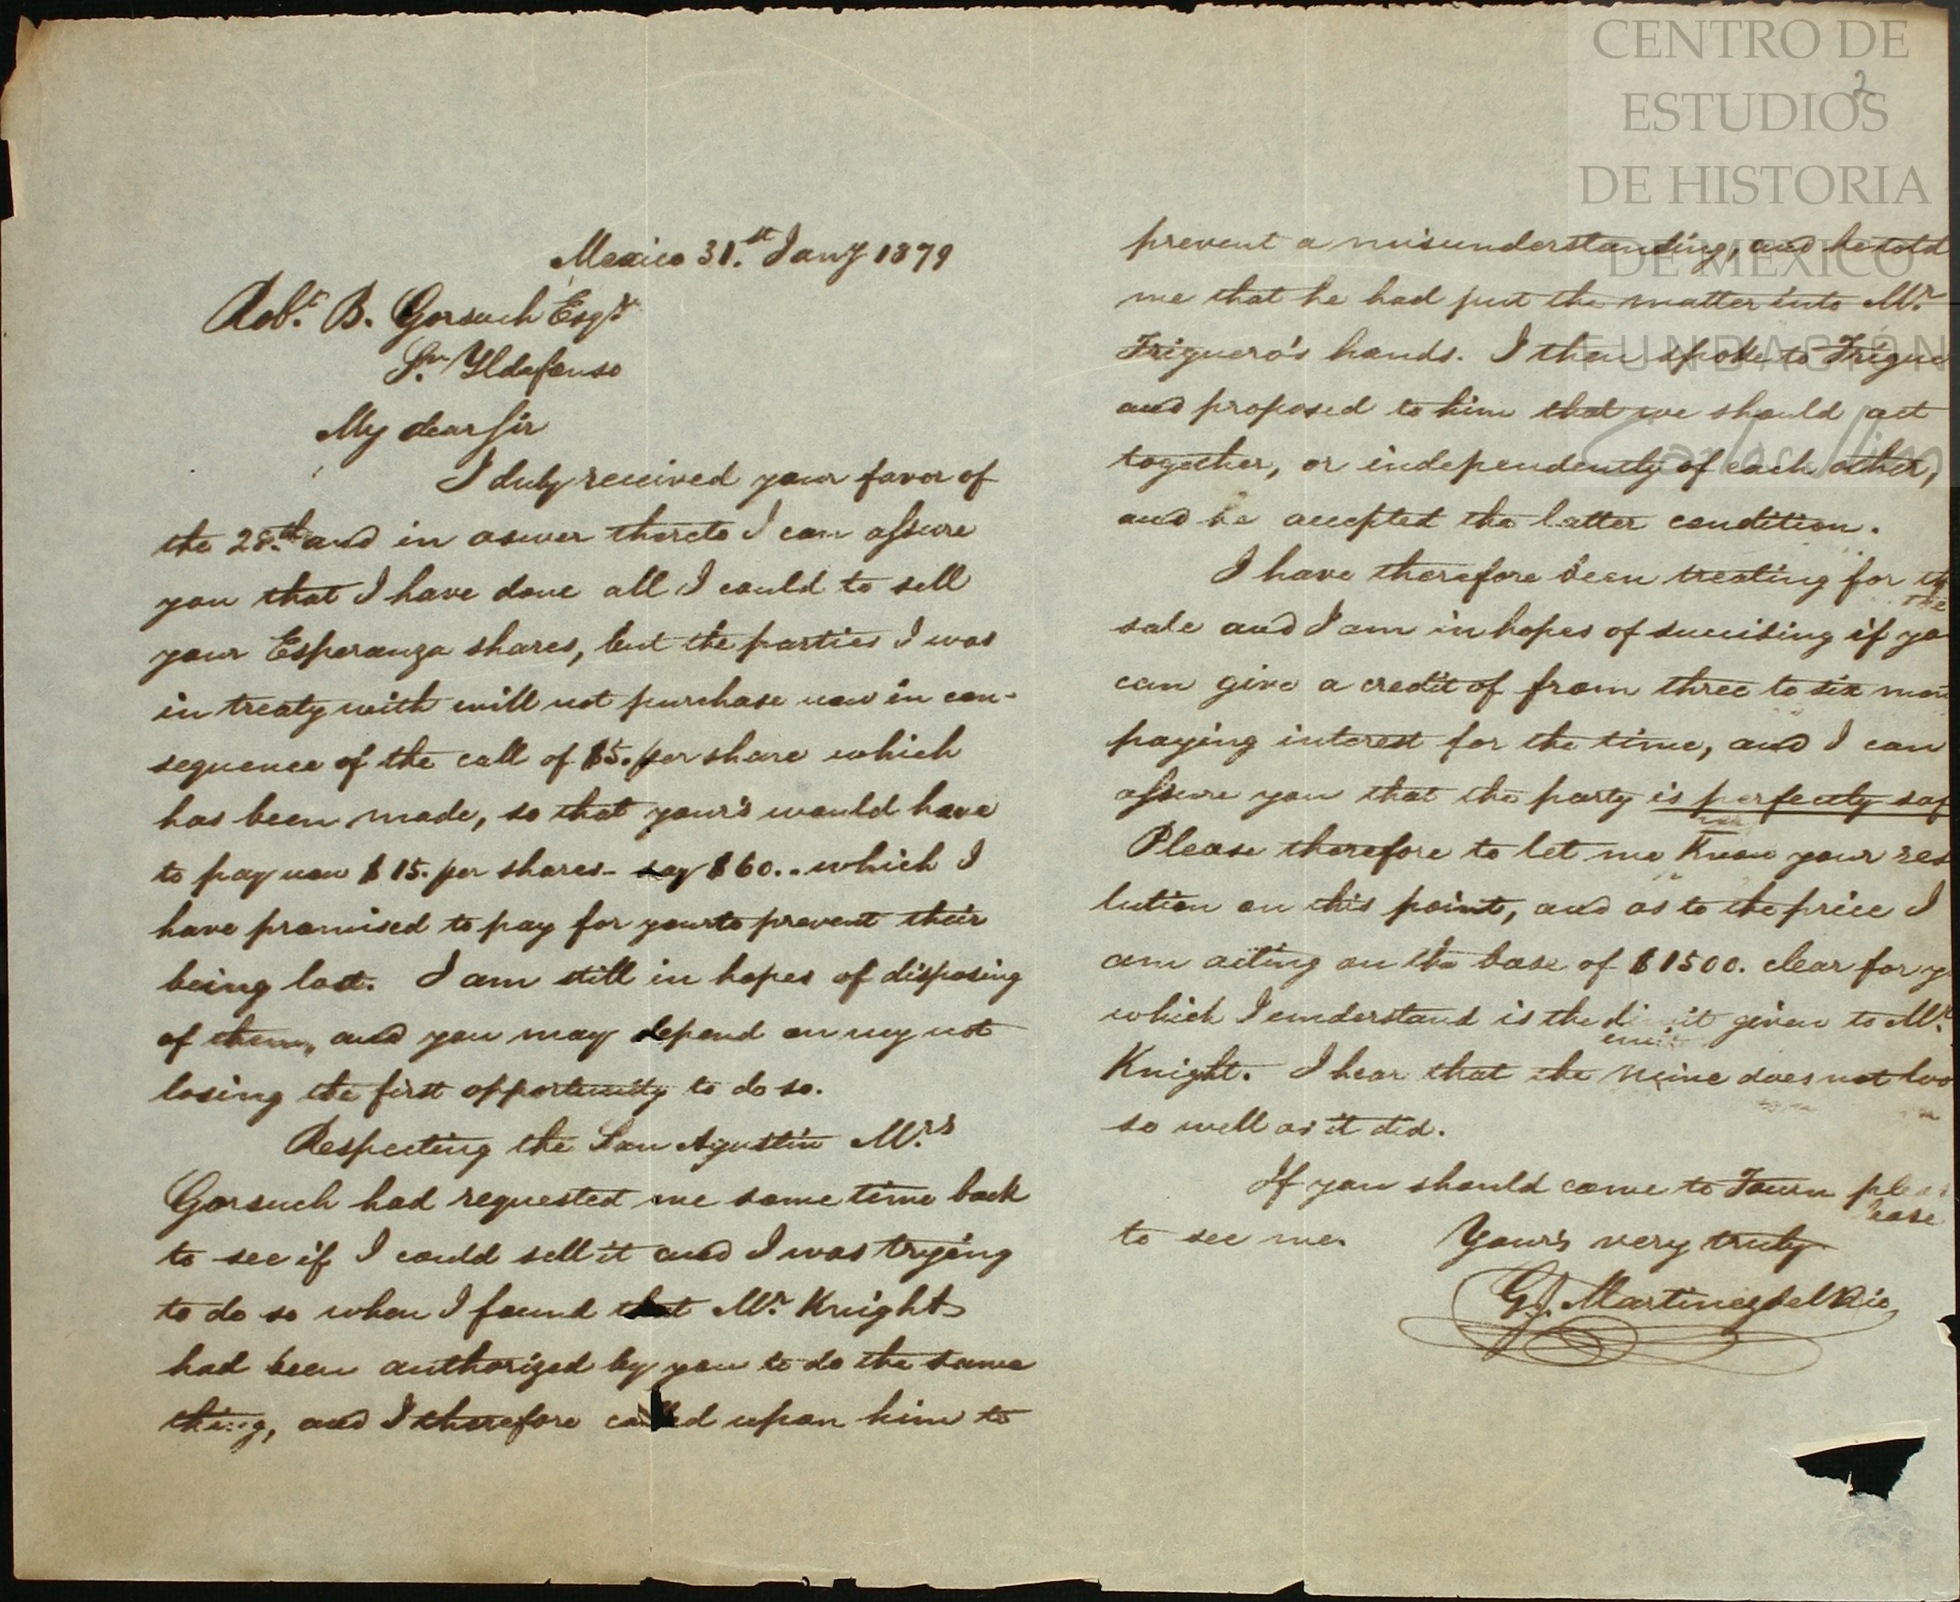 Mexico 31.st Jany 1879
Robt. B. Gorsuch Esqr
Sn. Yldefonso
My dear Sir
I duly received your favor of
the 28.th and in aswer thereto I can assure
you that I have done all I could to sell
your Esperanza shares, but the parties I was
in treaty with will not purchase now in con-
sequence of the call of $5. per share which
has been made, so that your's would have
to pay now $15. per shares - say $60.. which I
have promised to pay for your to prevent their
being lost. I am still in hopes of disposing
of them, and you may depend on my not
losing the first opportunity to do so.
Respecting the San Agustin Mrs
Gorsuch had requested me some time back
to see if I could sell it and I was trying
to do so when I found that Mr. Knight
had been authorized by you to do the same
thing, and I therefore called upon him to
prevent a misunderstanding, and he told
me that he had put the matter into Mr
Triguero's hands. I then spoke to Trigue
and proposed to him that we should act
together, or independently of each other,
and he accepted the latter condition.
I have therefore been treating for th
sale and I am in hopes of succiding if yo
can give a credit of from three to six mon
paying interest for the time, and I can
assure you that the party is perfectly saf
Please therefore to let me know your res
lution on this point, and as to the price I
am acting on the base of $1500. clear for y
which I understand is the limit given to Mr.
Knight. I hear that the mine does not loo
so well as it did.
If you should come to Town pleas
to see me. Your's very truly
G. J. Martinez del Rio
2
CENTRO DE
ESTUDIOS
DE HISTORIA
DE MEXICO
FUNDACIÓN
Carlos Slim